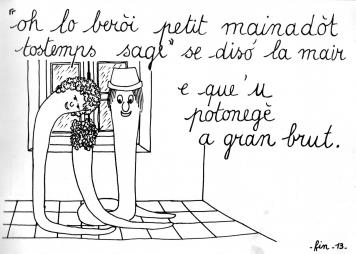 "oh lo beròi petit mainadòt
tostemps sage" se disó la mair
e que'u
potonegè
a gran brut.
-fin-13-